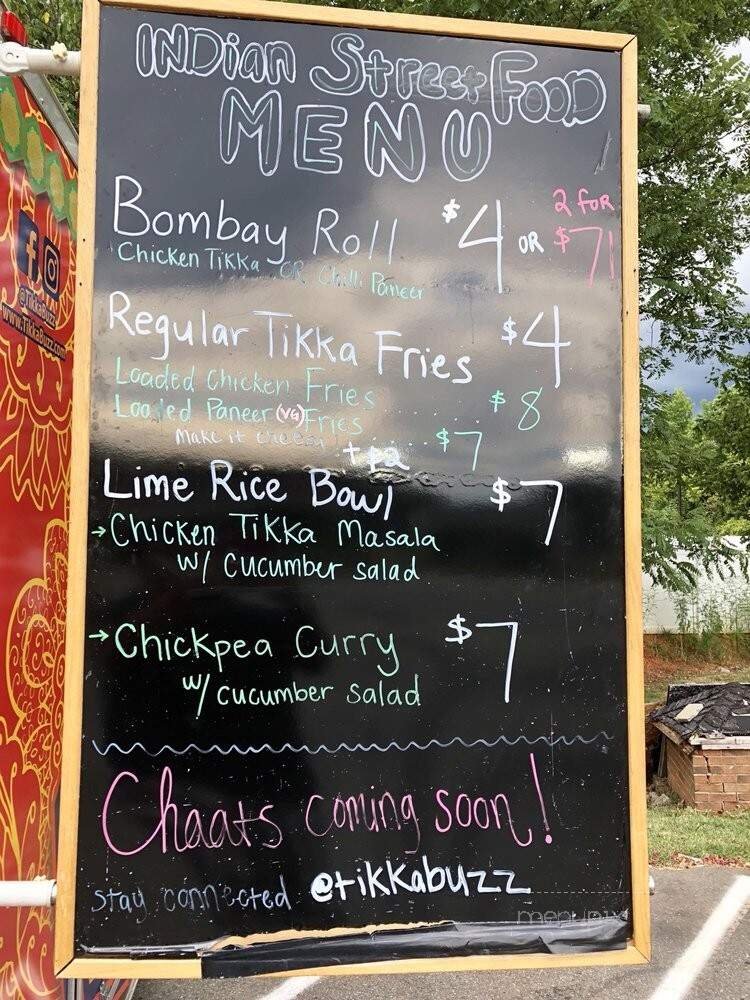 INDian Street Food
MENU
Bombay Roll $4 OR 2 FOR $7
Chicken Tikka OR Chilli Paneer
Regular Tikka Fries $4
Loaded Chicken Fries $8
Loaded Paneer (VG) Fries ..... $7
Make it cheesy! +$2
Lime Rice Bowl $7
→Chicken Tikka Masala
w/ cucumber salad
→Chickpea Curry $7
w/ cucumber salad
Chaats coming soon!
stay connected @tikkabuzz
@tikkabuzz
www.tikkabuzz.com
menupix